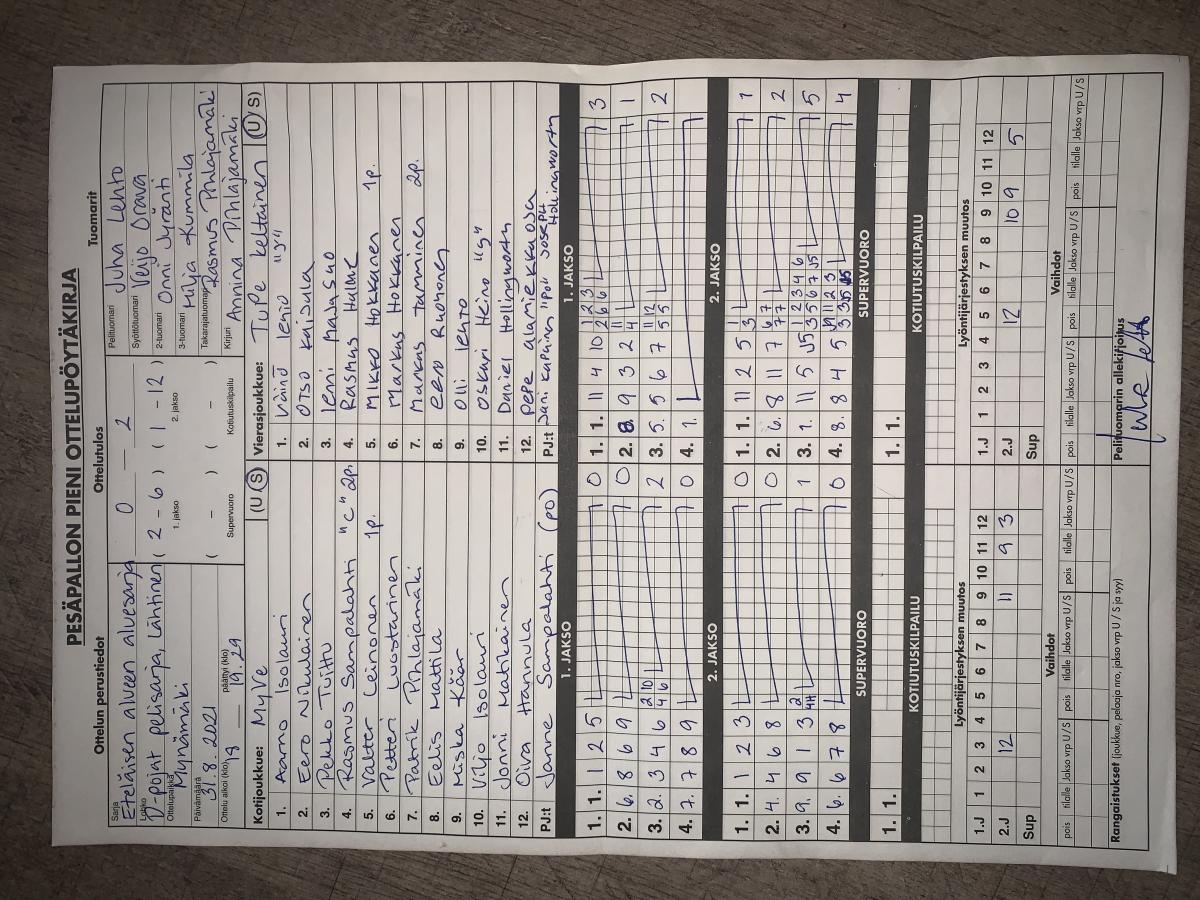 PESÄPALLON PIENI OTTELUPÖYTÄKIRJA
Ottelun perustiedot
Sarja Eteläisen alueen aluesarja
Lohko D-pojat pelisarja, Läntinen
Ottelupaikka Mynämäki
Päivämäärä 31.8.2021
Ottelu alkoi (klo) 18 — päättyi (klo) 19.29
Ottelutulos
0 — 2
( 2 - 6 ) ( 1 - 12 )
1. jakso 2. jakso
( - ) ( - )
Supervuoro Kotiutuskilpailu
Tuomarit
Pelituomari Juha Lehto
Syöttötuomari Veijo Orava
2-tuomari Onni Jyränti
3-tuomari Hilja Kummila
Takarajatuomari Rasmus Pihlajamäki
Kirjuri Annina Pihlajamäki
Kotijoukkue: MyVe (U/S)
1. Aarno Isolauri
2. Eero Nikulainen
3. Pekko Toittu
4. Rasmus Sampalahti "C" 2p.
5. Valtter Leinonen 1p.
6. Petteri Luostarinen
7. Patrik Pihlajamäki
8. Eelis Mattila
9. Miska Käär
10. Viljo Isolauri
11. Jonni Matikainen
12. Oiva Hannula
PJ:t Janne Sampalahti (PO)
Vierasjoukkue: TuPe keltainen (U/S)
1. Väinö Leniö "J"
2. Otso Kaisula
3. Ienni Malasuo
4. Rasmus Halme
5. Mikko Hokkanen 1p.
6. Markus Hokkanen
7. Markus Tamminen 2p.
8. Eero Ruohonen
9. Olli Lehto
10. Oskari Heino "S"
11. Daniel Hollingworth
12. Pepe Alamiekkaoja
PJ:t Jani Kapainen "PO" Joseph Hollingworth
1. JAKSO
1. 1. 1 2 5 0
2. 6. 8 6 9 0
3. 2. 3 4 6 2 4 10 6 2
4. 7. 7 8 9 0
2. JAKSO
1. 1. 1 2 3 0
2. 4. 4 6 8 0
3. 9. 9 1 3 2 1
4. 6. 6 7 8 0
SUPERVUORO
1. 1.
KOTIUTUSKILPAILU
1. JAKSO
1. 1. 11 4 10 1 2 2 6 3 6 3
2. 8. 9 3 2 11 4 1
3. 5. 5 6 7 11 5 12 5 2
4. 1.
2. JAKSO
1. 1. 11 2 5 1 3 1
2. 6. 8 11 7 6 7 7 7 2
3. 1. 11 5 J5 1 J5 2 3 3 5 4 6 6 7 J5 5
4. 8. 8 4 5 4
SUPERVUORO
1. 1.
KOTIUTUSKILPAILU
Lyöntijärjestyksen muutos
1.J 1 2 3 4 5 6 7 8 9 10 11 12
2.J 12 11 9 3
Sup
Vaihdot
pois tilalle Jakso vrp U/S pois tilalle Jakso vrp U/S pois tilalle Jakso vrp U/S
Lyöntijärjestyksen muutos
1.J 1 2 3 4 5 6 7 8 9 10 11 12
2.J 12 10 9 5
Sup
Vaihdot
pois tilalle Jakso vrp U/S pois tilalle Jakso vrp U/S pois tilalle Jakso vrp U/S
Rangaistukset (joukkue, pelaaja nro, jakso vrp U / S ja syy)
Pelituomarin allekirjoitus